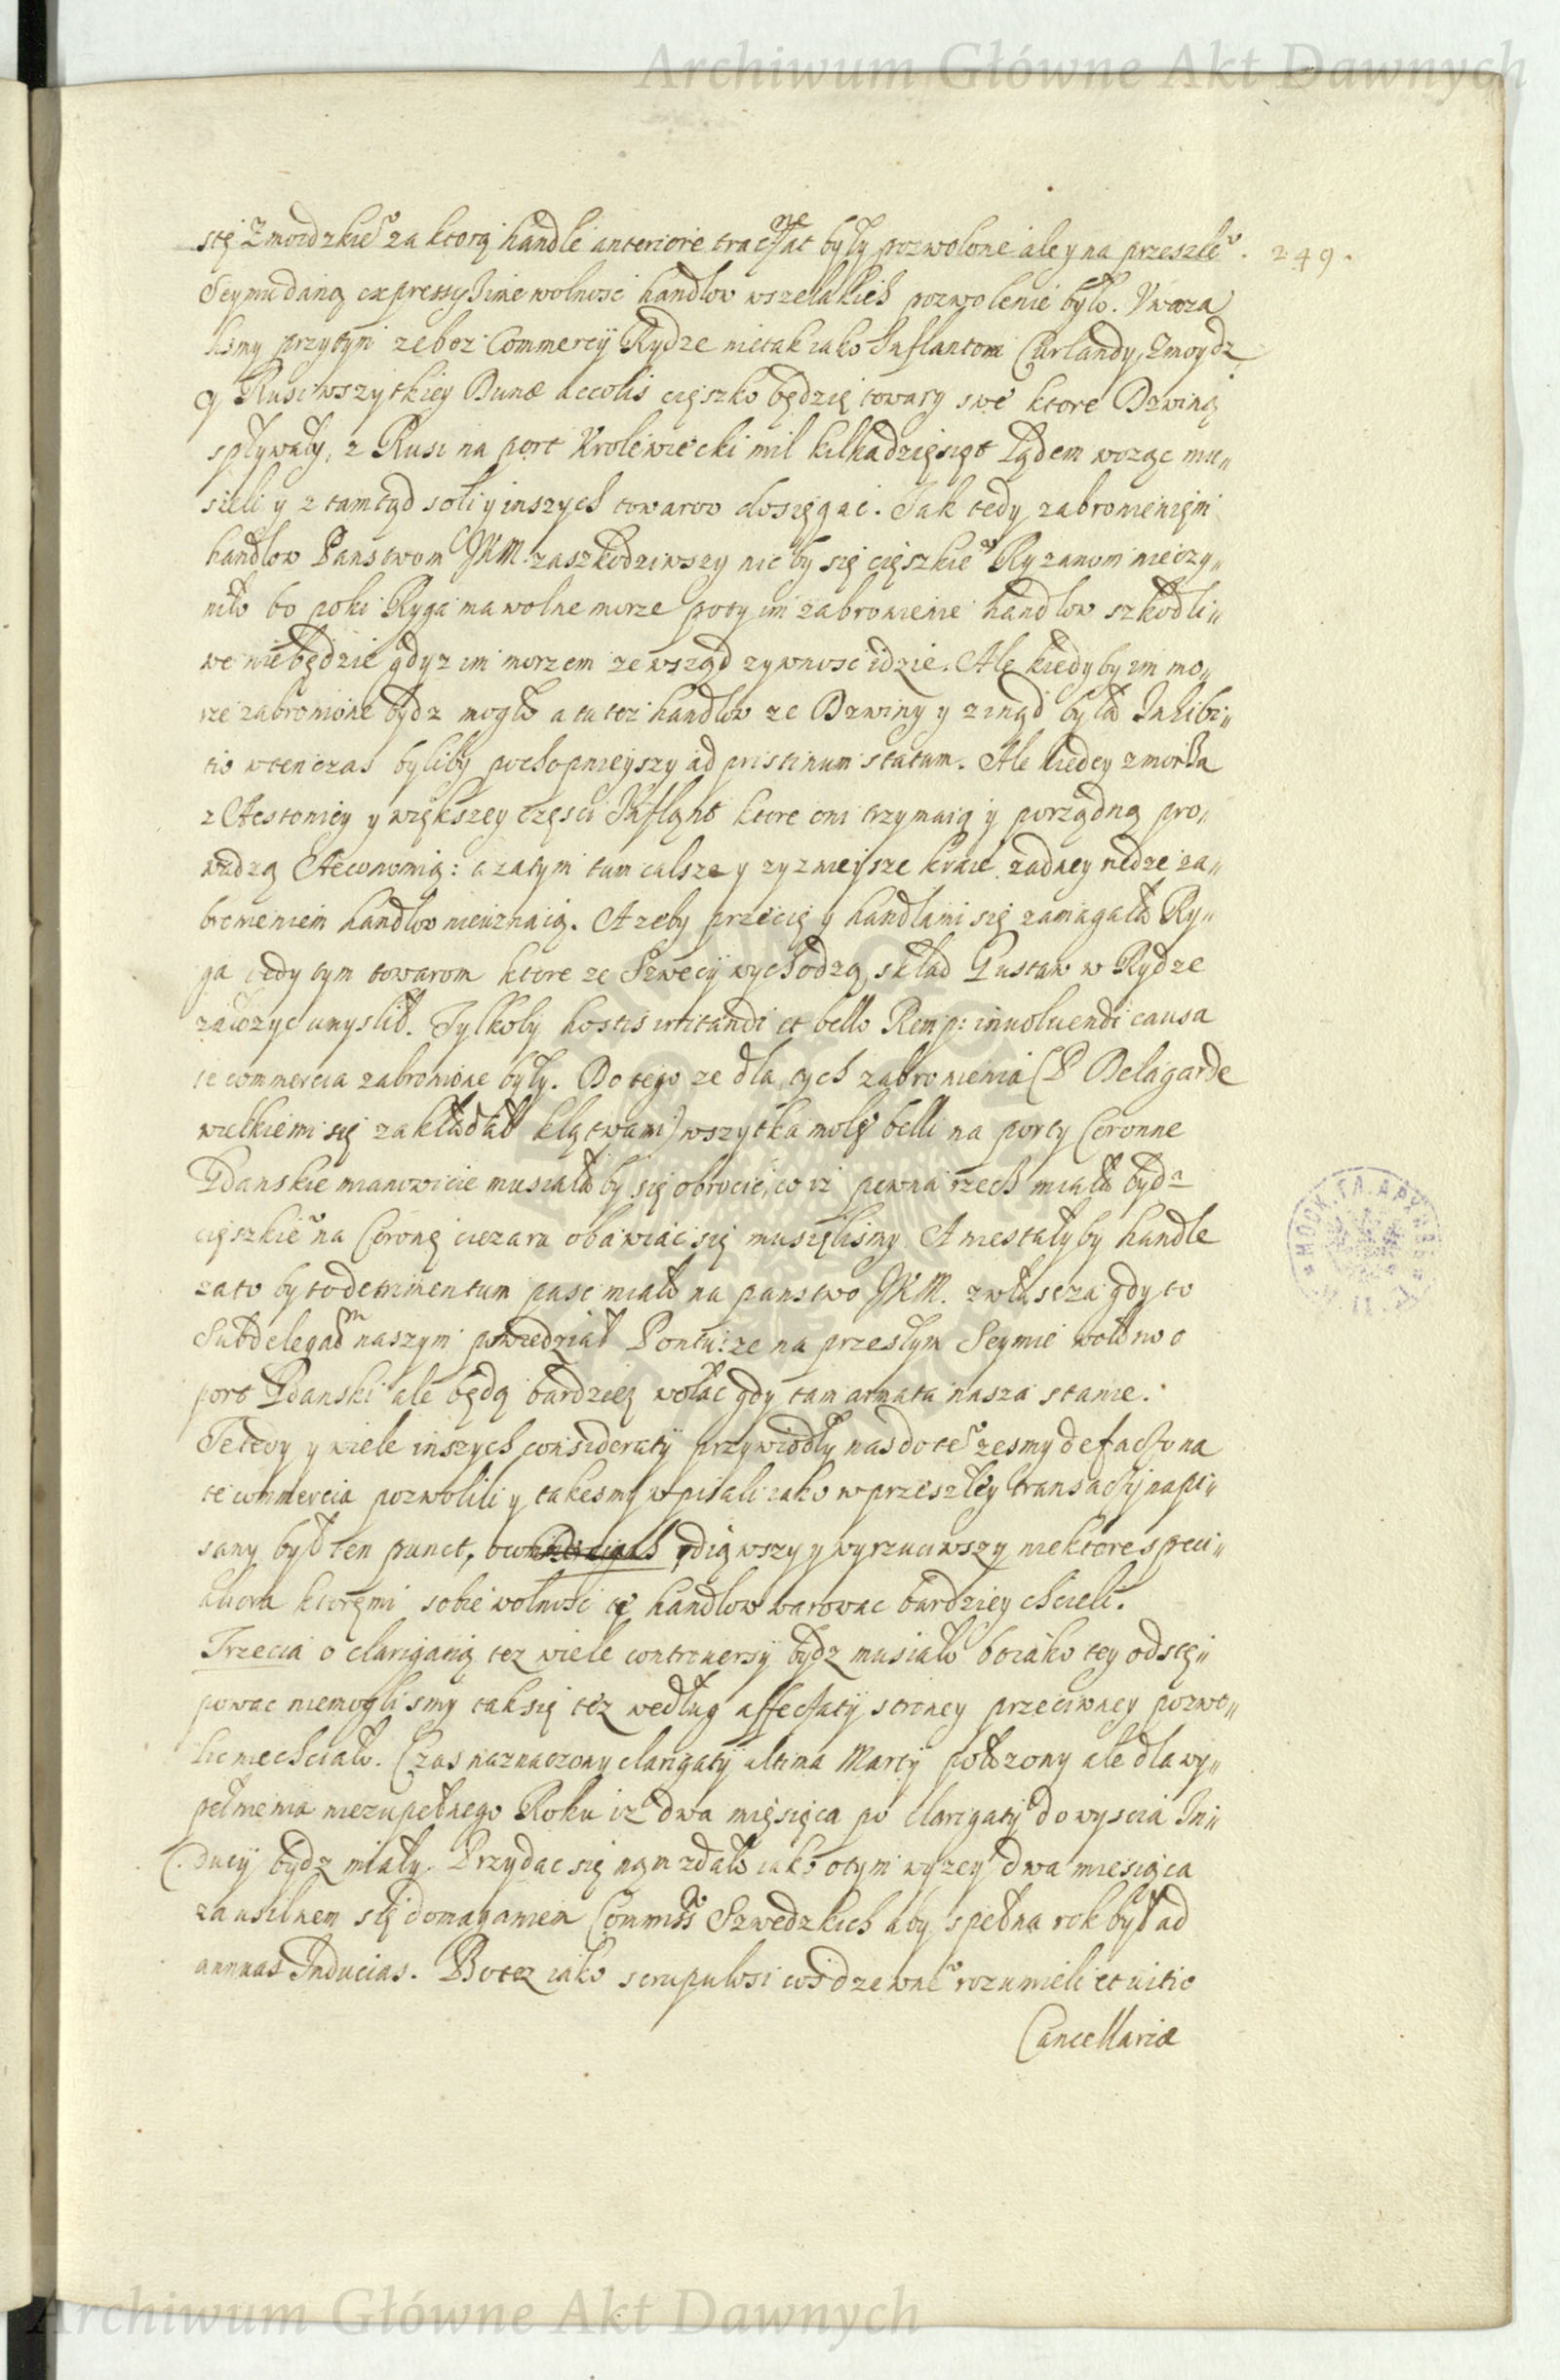 Archiwum Główne Akt Dawnych
249.
stę Zmoidzkie° za ktorą handle anteriore tractatne były pozwolone ale y na przeszle°
Seymu daną expressissime wolnosc handlow wszelakich pozwolenie było. Vwaza
lismy przytym ze bez Commercÿ Rydze nie tak iako Inflantom Curlandÿ, Zmoydz
y Rusi wszytkiey Dunæ accolis cięszko będzię towary swe ktore Dzwiną
spływały, z Rusi na port Krolewiecki mil kilkadzięsiąt Lądem woząc mu„
sieli y z tamtąd soli y inszych towarow dosięgac. Tak tedy zabronienięm
handlow Panstwom JKM. zaszkodziwszy nic by się cięszkie° Ryzanom nieczy„
niło bo poki Ryga ma wolne morze poty im zabronienie handlow szkodli„
we nie będzie gdyz im morzem ze wsząd zywnosc idzie. Ale kiedyby im mo„
rze zabronione bydz mogło a tu tez handlow ze Dzwiny y zinąd była Inhibi„
tio wtenczas byliby pochopnieyszy ad pristinum statum. Ale kiedy z morza
z Aestoniey y większey częsci Infląnt ktore oni trzymaią y porządną pro„
wadzą Aeconomią: a zatym tam calsze y zyznieysze kraie zadney nędze za„
bronieniem handlow nieuznaią. A zeby przecię y handlami się zamagała Ry„
ga tedy tym towarom ktore ze Szwecÿ wychodzą, skład Gustaw w Rydze
załozyc umyslił. Tylkoby hostis irritandi et bello Remp: inuoluendi causa
te commercia zabronione były. Do tego ze dla tych zabronienia (P Delagarde
wielkiemi się zakładał klątwami) wszytka moles belli na porty Coronne
Gdanskie mianowicie musiała by się obrocic, co iz pewna rzecz miała bydz
cięszkie° na Coronę cięzaru obawiac się musięlismy. A niestały by handle
za to by to detrimentum pasc miało na panstwo JKM. zwłaszcza gdy to
Subdelegatom naszym powiedział Pontus: ze na przeszłym Seymie wołano
port Gdanski ale będą bardziey wołac gdy tam armata nasza stanie.
Te tedy y wiele inszych consideratÿ przywiodły nas do te° zesmy de facto na
te commercia pozwolili y takesmy wpisali iako w przeszłey transactÿ napi„
sany był ten punct, odiąwszy y wyrzuciwszy niektore speci„
aliora ktoręmi sobie wolnosc tę handlow warowac bardziey chcieli.
Trzecia o clarigatią tez wiele controuersÿ bydz musiało bo iako tey odstę„
powac niemoglismy tak się tez według affectatÿ strony przeciwney pozwo„
lic niechciało. Czas naznaczony clarigatÿ ultima Martÿ połozony ale dla wy„
pełnienia niezupełnego Roku iz dwa mięsiąca po clarigatÿ do wyscia In„
ducÿ bydz miały. Przydac się nąm zdało iako o tym wyzey dwa miesiąca
za usilnem się domaganiem Commiss° Szwedzkich aby spełna rok był ad
annuas Inducias. Bo tez iako scrupulosi cos dziwne° rozumieli et uitio
Cancellariæ
Archiwum Główne Akt Dawnych